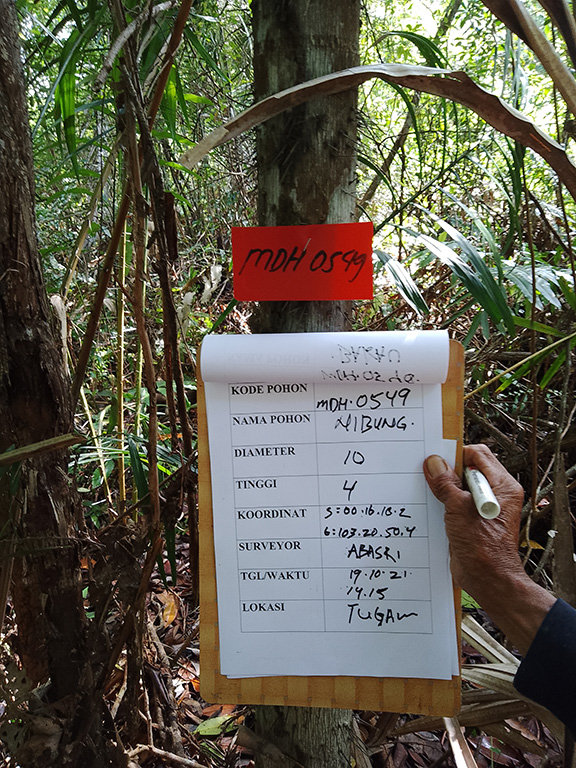 MDH 0549
KODE POHON MDH.0549
NAMA POHON NIBUNG.
DIAMETER 10
TINGGI 4
KOORDINAT S:00.16.18.2
6:103.20.50.4
SURVEYOR ABASRI
TGL/WAKTU 19.10.21.
14.15
LOKASI TUGAM